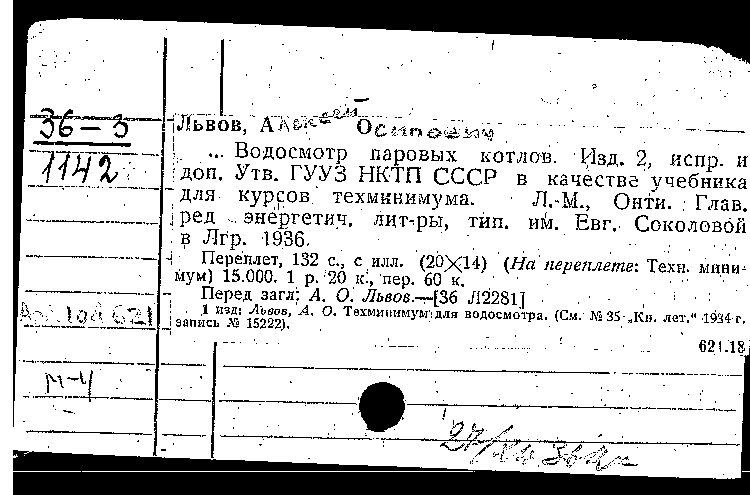 36-3
1142
Львов, Алексей Осипович
... Водосмотр паровых котлов. Изд. 2, испр. и
доп. Утв. ГУУЗ НКТП СССР в качестве учебника
для курсов техминимума. Л.-М., Онти. Глав.
ред энергетич. лит-ры, тип. им. Евг. Соколовой
в Лгр. 1936.
Переплет, 132 с., с илл. (20×14) (На переплете: Техн. мини-
мум) 15.000. 1 р. 20 к., пер. 60 к.
Перед загл: А. О. Львов.—[36 Л2281]
1 изд: Львов, А. О. Техминимум для водосмотра. (См. № 35 „Кн. лет.“ 1934 г.
запись № 15222).
621.18
621
М-4
27/